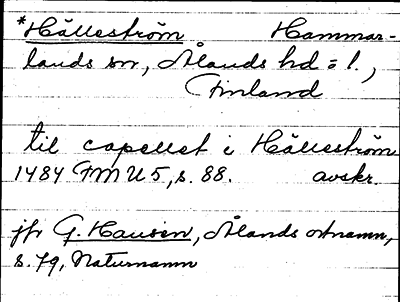 *Hälleström Hammar-
lands sn, Ålands hd o l.,
Finland
til capellet i Hälleström
1484 FMU 5, s. 88. avskr.
jfr G. Hausen, Ålands ortnamn,
s. 79, Naturnamn